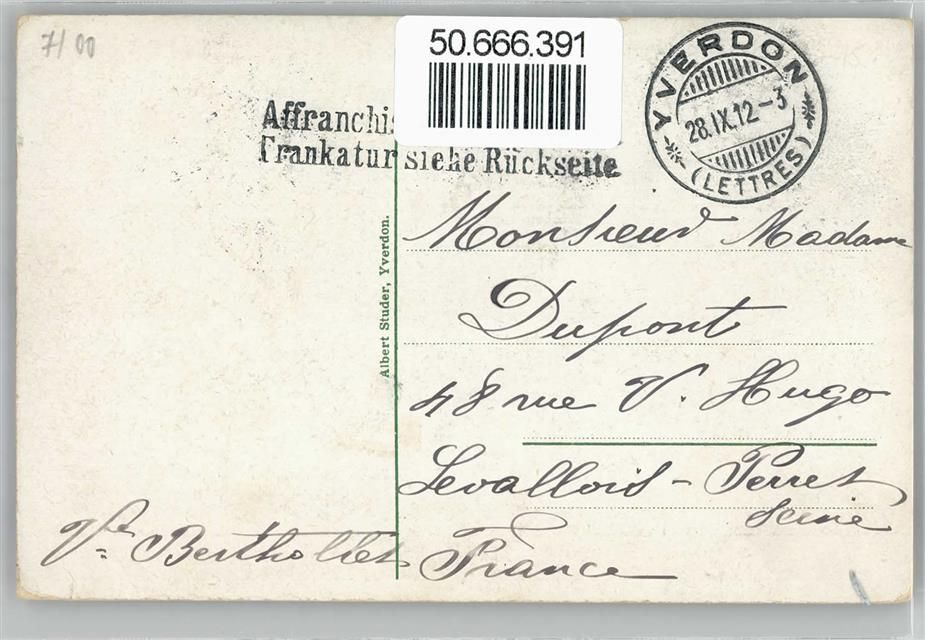 7/00
50.666.391
YVERDON
28.IX.12-3
(LETTRES)
Affranchis
Frankatur siehe Rückseite
Albert Studer, Yverdon.
Monsieur Madame
Dupont
48 rue V. Hugo
Levallois-Perret
Seine
France
Vve Bertholet